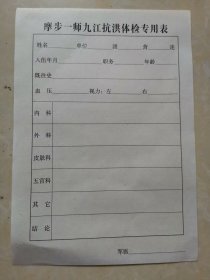 摩步一师九江抗洪体检专用表
姓名 单位 团 营 连
入伍年月 职务 年龄
既往史
血 压 视力：左 右
内 科
外 科
皮肤科
五官科
其 它
结 论
军医